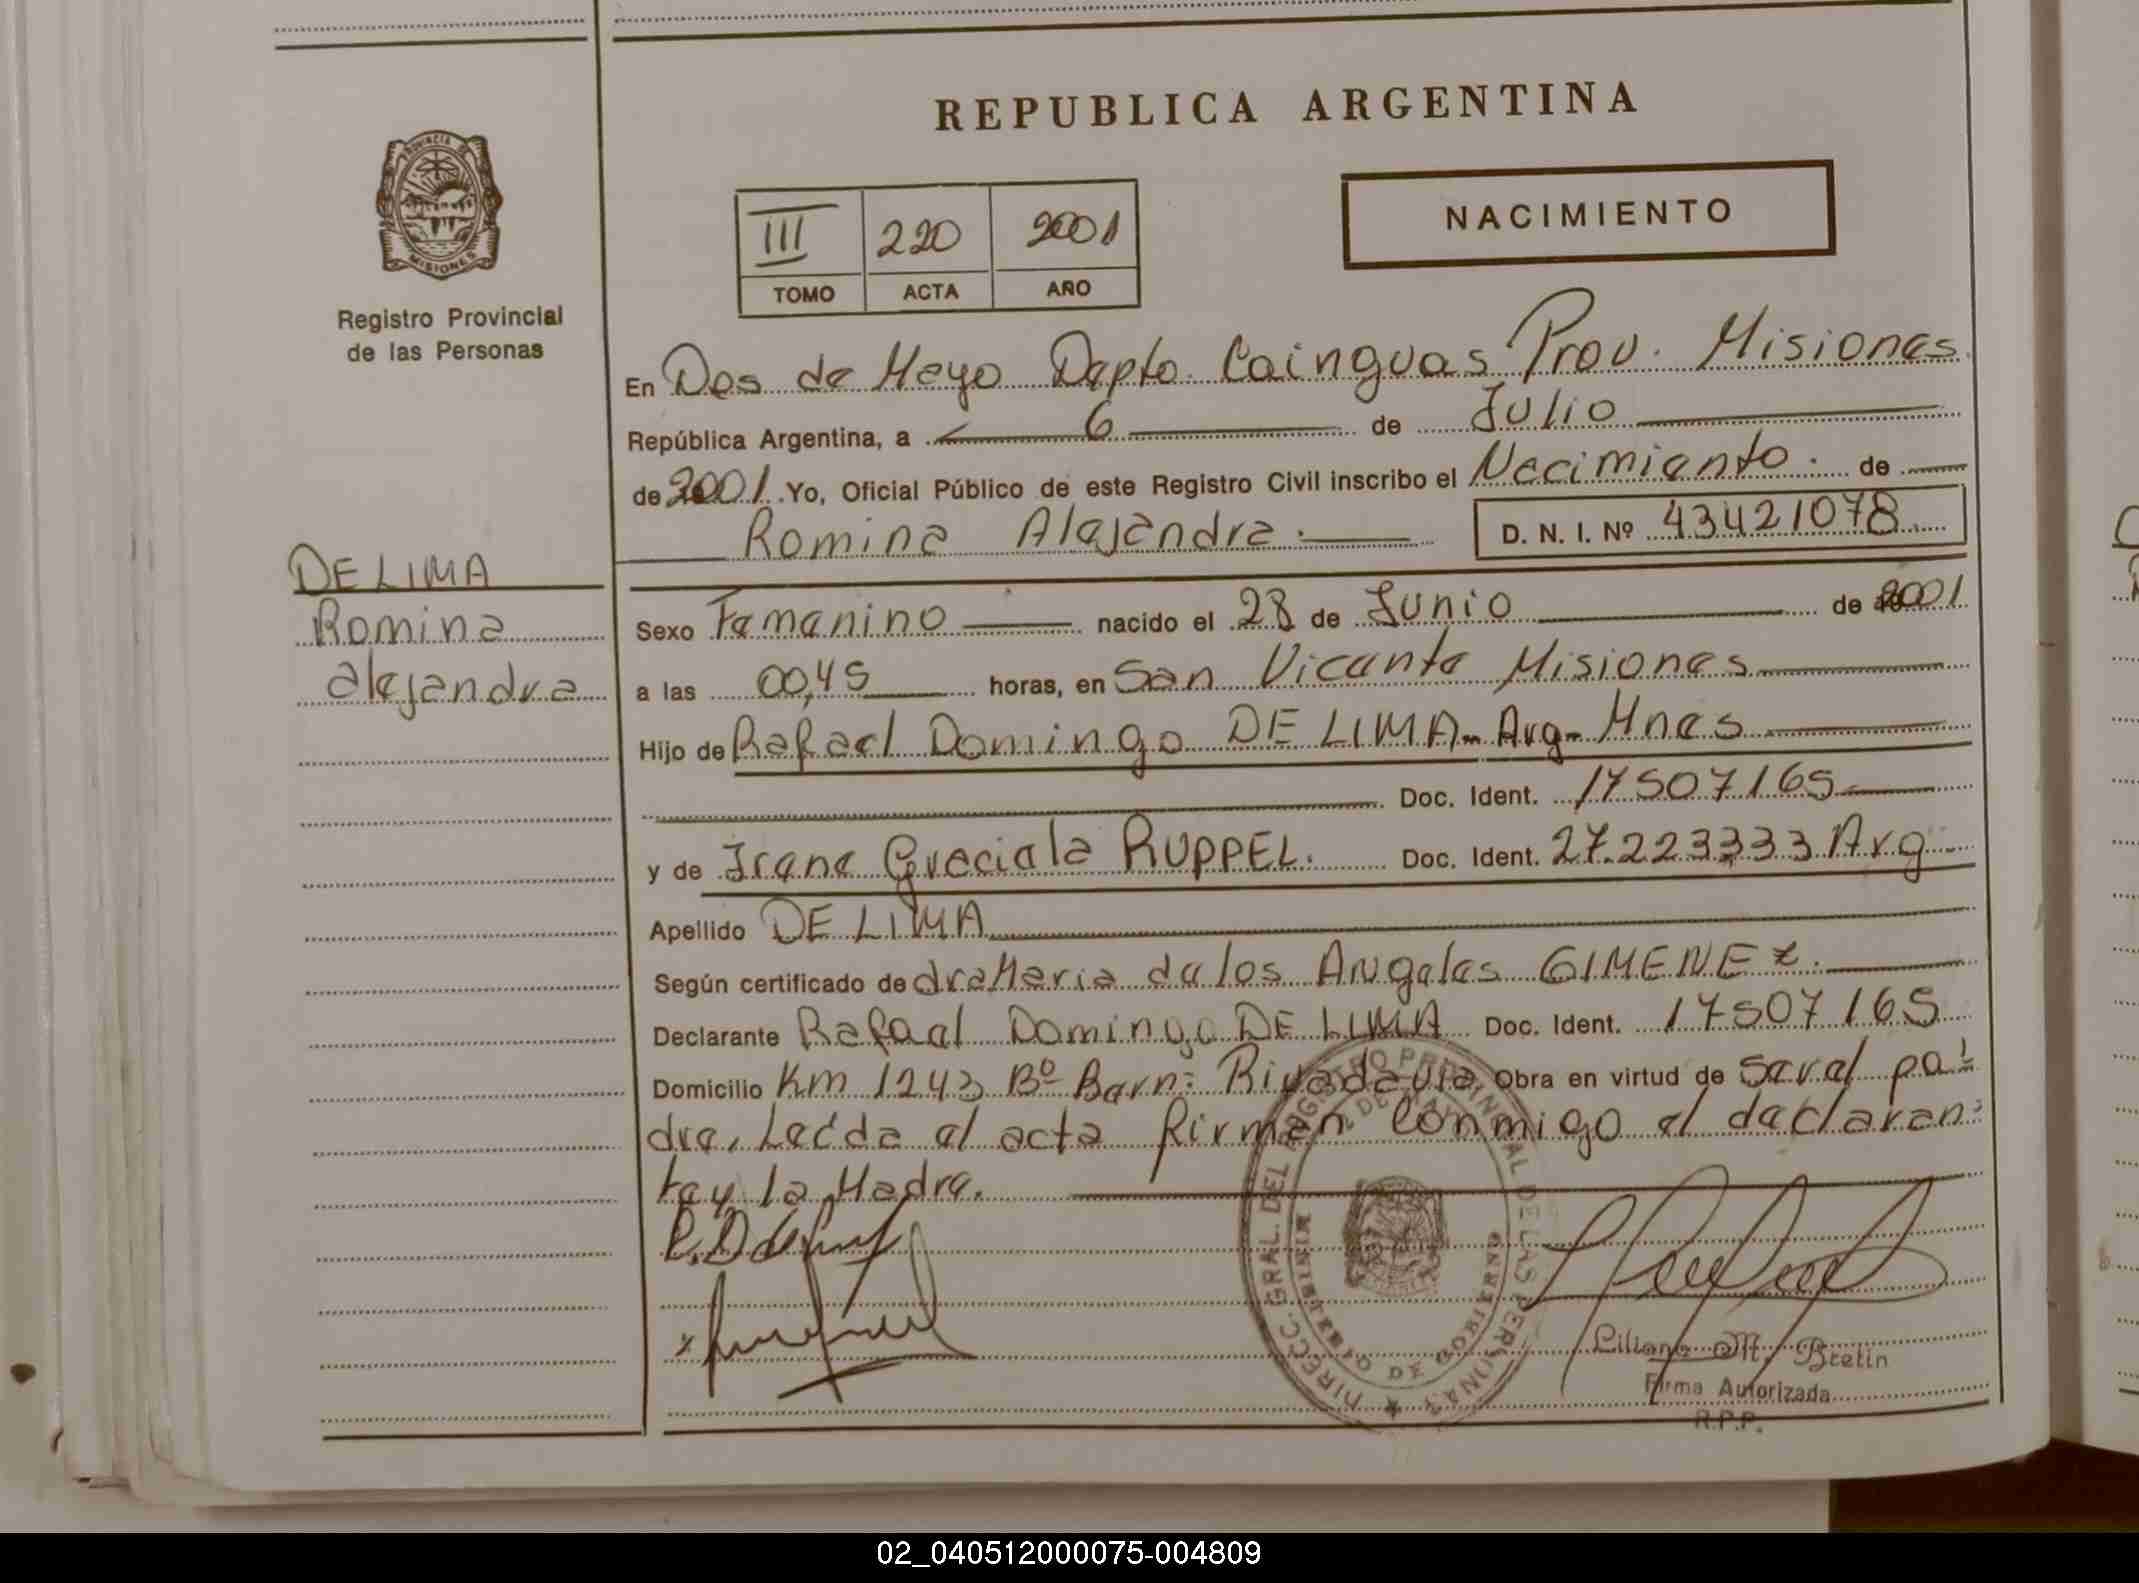 REPUBLICA ARGENTINA
PROVINCIA DE
MISIONES
Registro Provincial
de las Personas
III 220 2001
TOMO ACTA AÑO
NACIMIENTO
En Dos de Mayo Depto. Cainguas Prov. Misiones
República Argentina, a 6 de Julio
de 2001. Yo, Oficial Público de este Registro Civil inscribo el Nacimiento. de
Romina Alejandra. D. N. I. Nº 43421078
DE LIMA
Romina
Alejandra
Sexo Femenino nacido el 28 de Junio de 2001
a las 00,45 horas, en San Vicente Misiones
Hijo de Rafael Domingo DE LIMA - Arg - Mnes
Doc. Ident. 17507165
y de Irene Graciela RUPPEL. Doc. Ident. 27.223333 Arg
Apellido DE LIMA
Según certificado de dra Maria de los Angeles GIMENEZ.
Declarante Rafael Domingo DE LIMA Doc. Ident. 17507165
Domicilio Km 1243 Bº Barn: Rivadavia Obra en virtud de ser el pa-
dre, Leída el acta firman conmigo el declaran-
te y la Madre.
DIRECC. GRAL. DEL REGISTRO PROVINCIAL DE LAS PERSONAS
DE MAYO
MINISTERIO DE GOBIERNO
Liliana M. Bretin
Firma Autorizada
R.P.P.
02_040512000075-004809